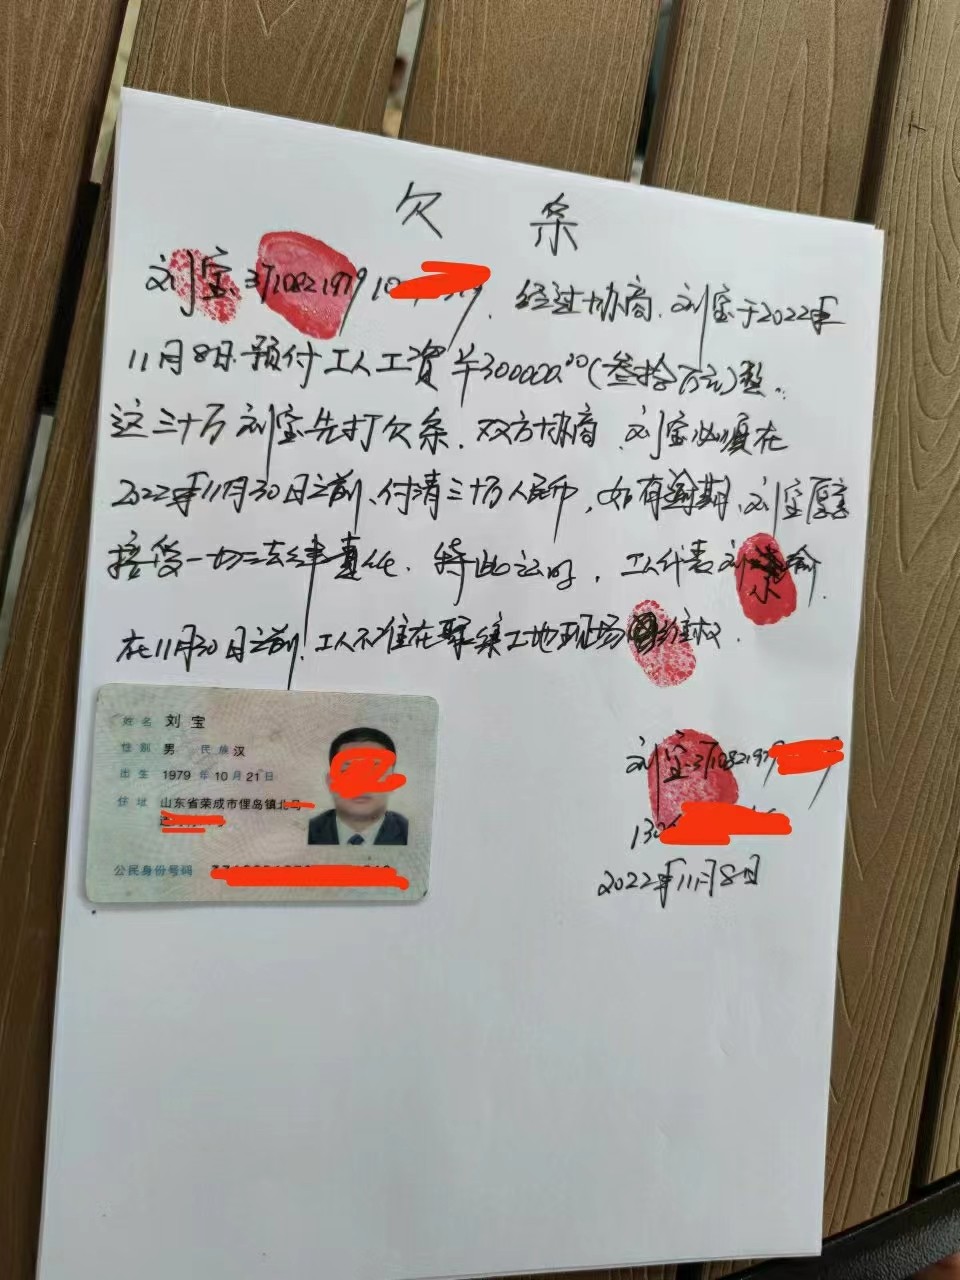 欠 条
刘宝 371082197910，经过协商，刘宝于2022年
11月8日预付工人工资￥300000.00(叁拾万元)整，
这三十万刘宝先打欠条，双方协商，刘宝必须在
2022年11月30日之前、付清三十万人民币，如有逾期，刘宝愿意
接受一切法律责任，特此证明，工人代表刘
在11月30日之前，工人不准在聚集工地现场维权.
姓名 刘宝
性别 男 民族 汉
出生 1979 年 10 月 21 日
住址 山东省荣成市俚岛镇北
公民身份号码
刘宝 371082197
130
2022年11月8日